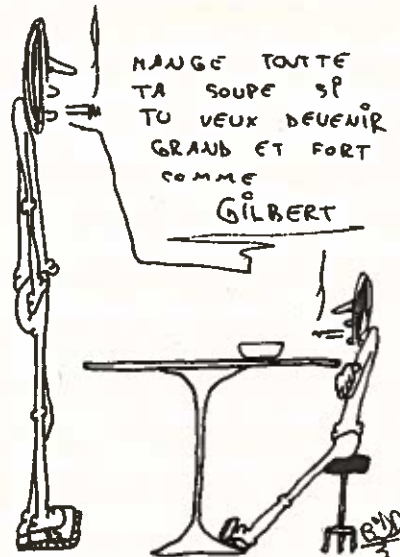 MANGE TOUTE
TA SOUPE SI
TU VEUX DEVENIR
GRAND ET FORT
COMME
GILBERT